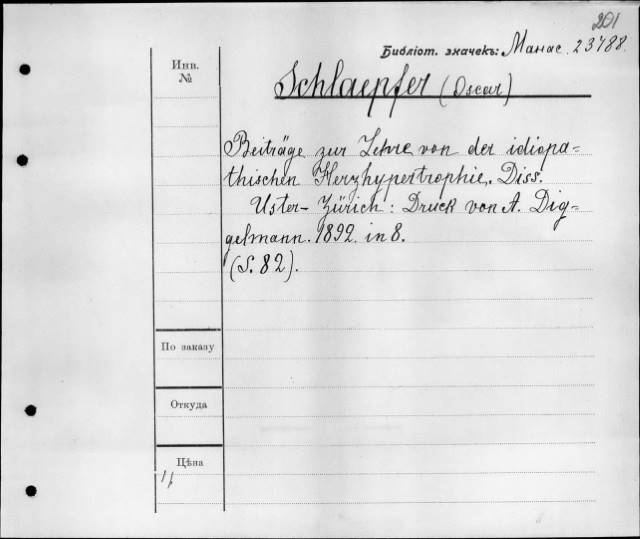 201
Библіот. значекъ: Манас. 23788.
Инв.
№
Schlaepfer (Oscar)
Beiträge zur Lehre von der idiopa=
thischen Herzhypertrophie. Diss.
Uster-Zürich: Druck von A. Dig=
gelmann. 1892. in 8.
(S. 82).
По заказу
Откуда
Цѣна